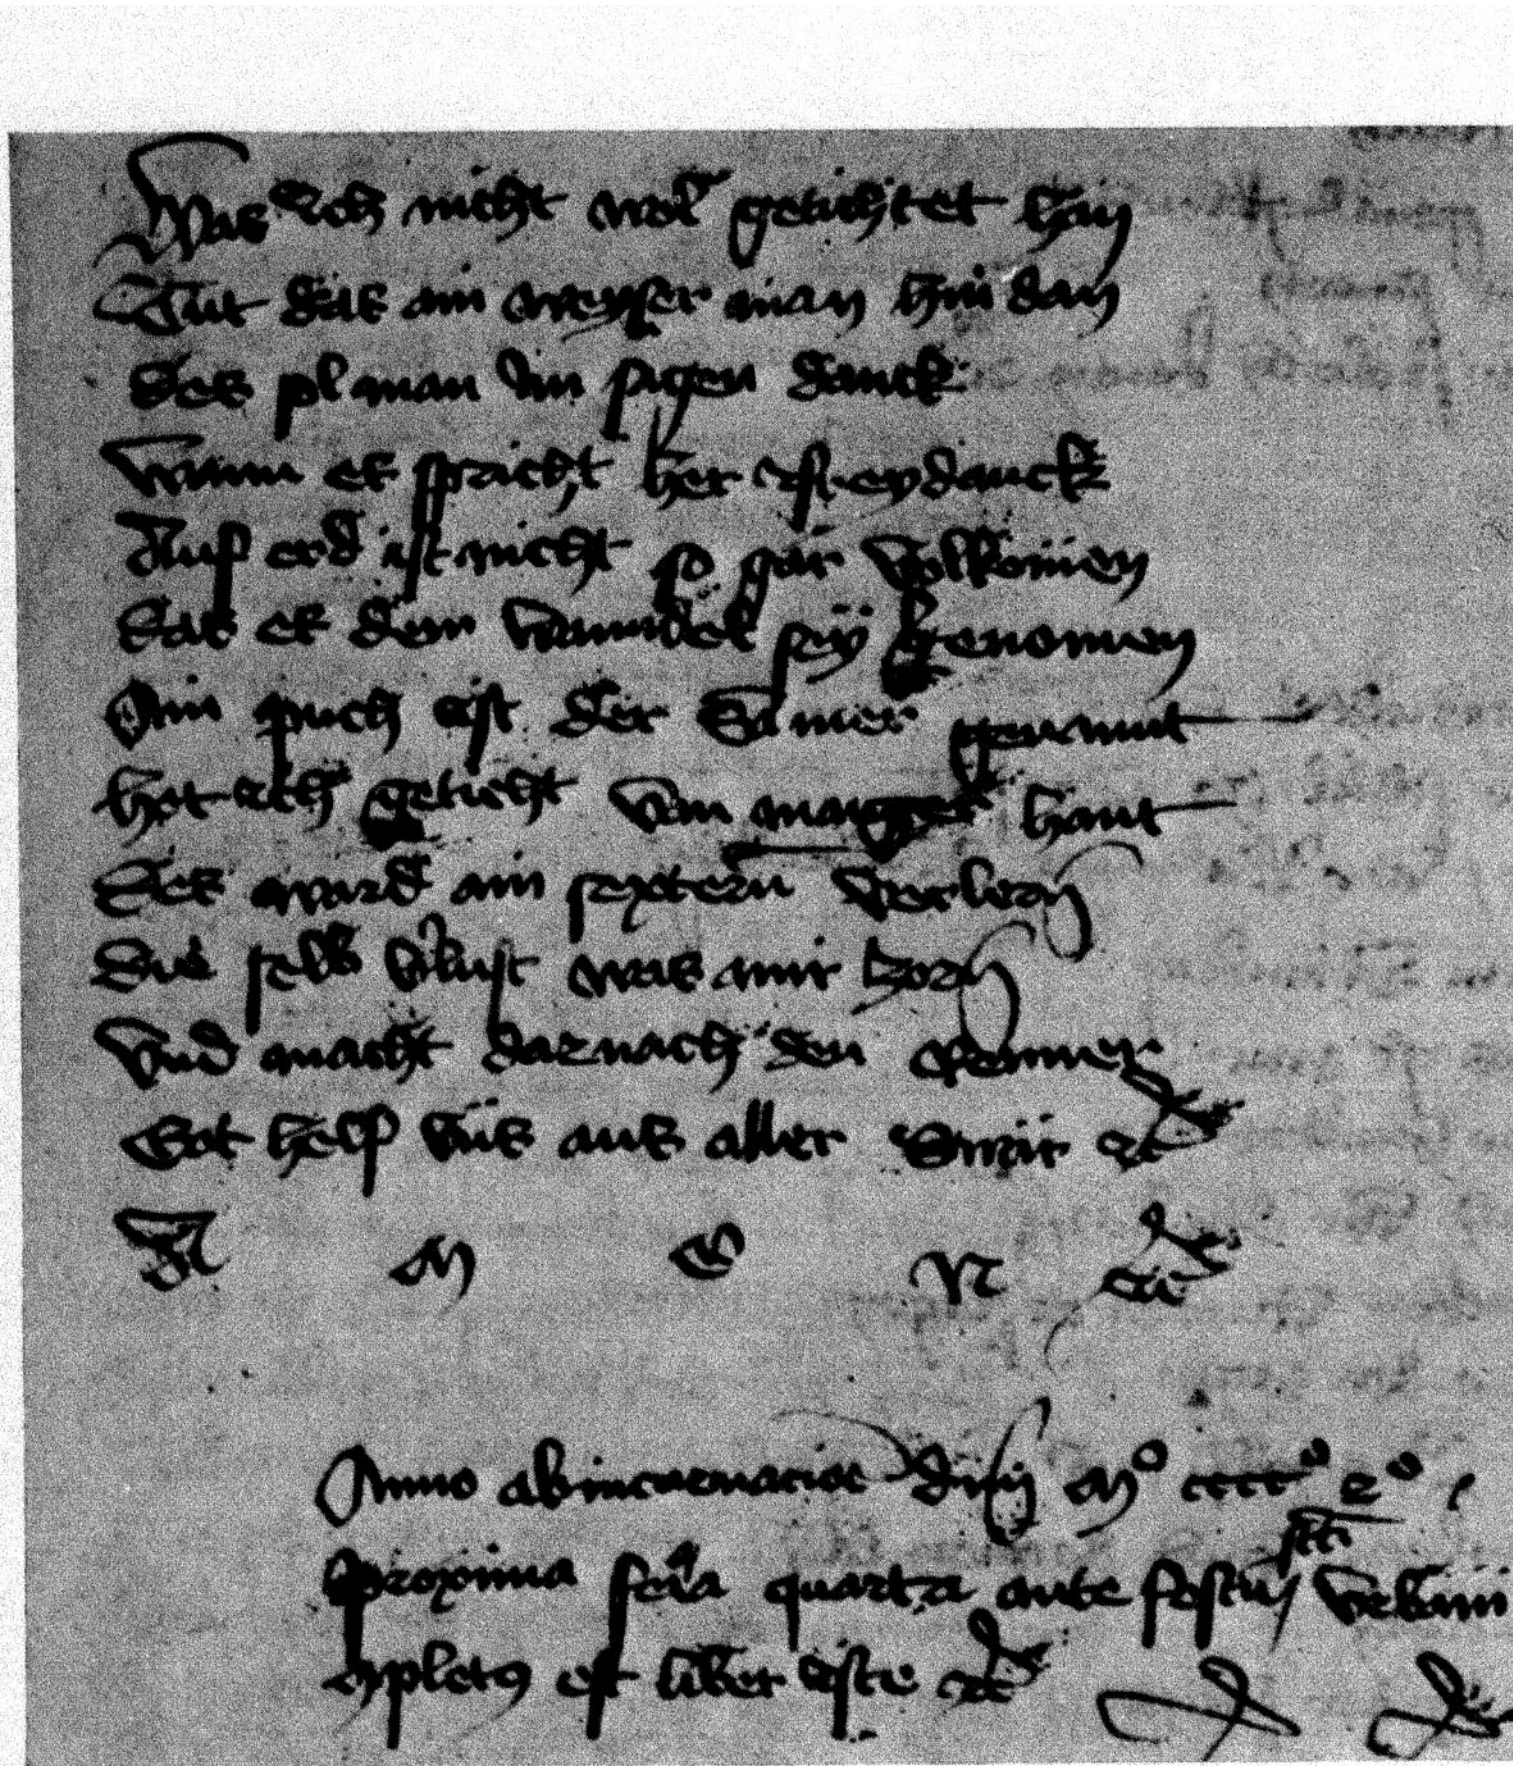 Was ich nicht wol getichtet han
Tut das ain weyser man hin dan
Des sol man im sagen danck
Wann es spricht her freydanck
Auf erd ist nicht so gar volkomen
Das es dem wanndel sey genomen
Ain puch ist der Samer genannt
het ich geticht von hant
Des ward ain sextern verlorn
Die selb verlust was mir zorn
Vnd macht darnach den Renner
Got helf vns aus aller swär etc
A M E N etc
Anno ab incarnacione dni Mº ccccº 2º
proxima feria quarta ante festum sancti Urbani
completus est liber iste etc